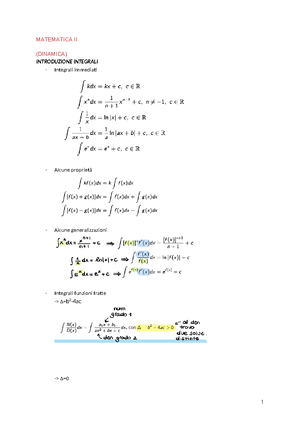 MATEMATICA II
(DINAMICA)
INTRODUZIONE INTEGRALI
- Integrali immediati
∫ kdx = kx + c, c ∈ ℝ
∫ xⁿdx = 1/(n+1) xⁿ⁺¹ + c, n ≠ −1, c ∈ ℝ
∫ 1/x dx = ln|x| + c, c ∈ ℝ
∫ 1/(ax + b) dx = 1/a ln|ax + b| + c, c ∈ ℝ
∫ eˣdx = eˣ + c, c ∈ ℝ
- Alcune proprietà
∫ kf(x)dx = k ∫ f(x)dx
∫[f(x) + g(x)]dx = ∫ f(x)dx + ∫ g(x)dx
∫[f(x) − g(x)]dx = ∫ f(x)dx − ∫ g(x)dx
- Alcune generalizzazioni
⇒ ∫[f(x)]ⁿ f'(x)dx = [f(x)]ⁿ⁺¹/(n+1) + c
∫ 1/x dx = ln|x| + c ⇒ ∫ f'(x)/f(x) dx = ln|f(x)| + c
∫ eˣdx = eˣ + c ⇒ ∫ e^f(x) f'(x)dx = e^f(x) + c
- Integrali funzioni fratte
-> Δ=b²-4ac
num grado 1
∫ N(x)/D(x) dx = ∫ dx, con Δ = b² − 4ac > 0
den grado 2
al den trovo due soluz distinte
-> Δ=0
1